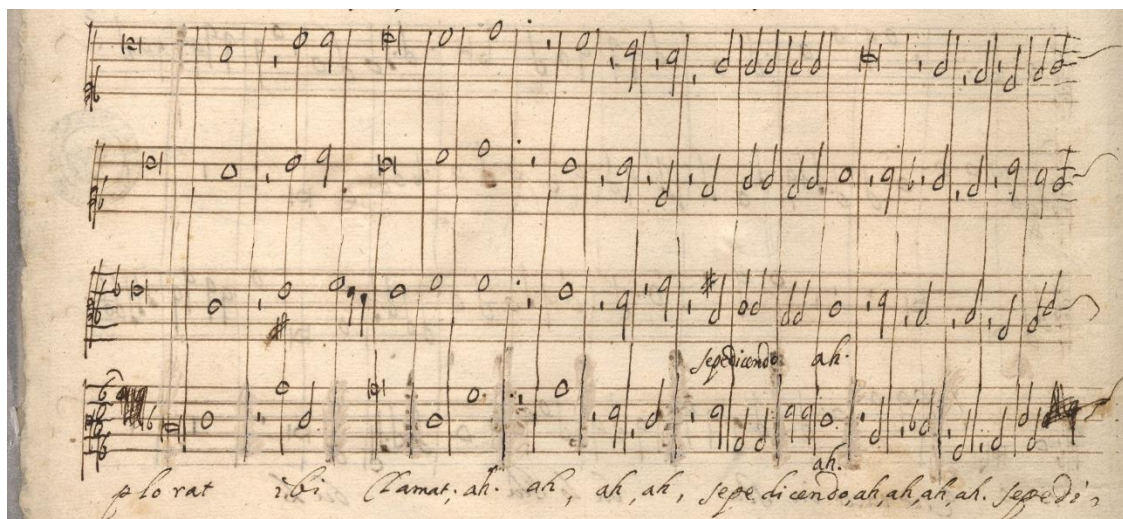 sepedicendo ah.
ah.
plorat ibi Clamat. ah. ah, ah, ah, sepe dicendo, ah, ah, ah, ah. sepedi,